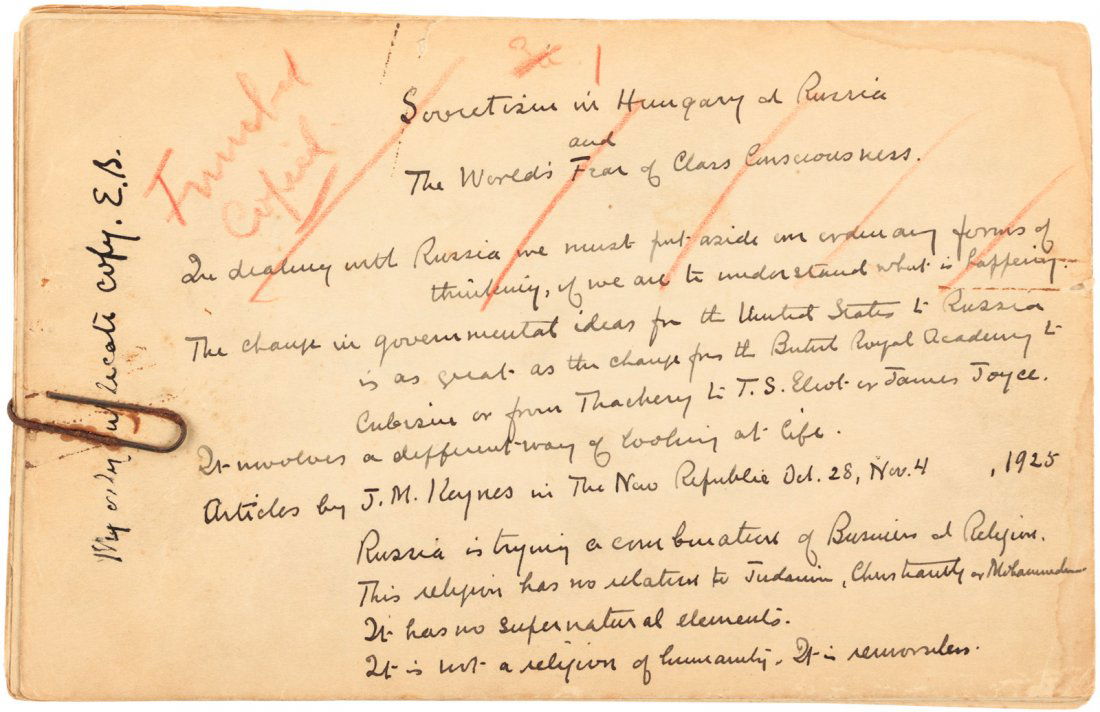 3d 1
Copied
My only duplicate copy. E.B.
Sovietism in Hungary & Russia
and
The World's Fear of Class Consciousness.
In dealing with Russia we must put aside our ordinary forms of
thinking, if we are to understand what is happening.
The change in governmental ideas from the United States to Russia
is as great as the change from the British Royal Academy to
Cubism or from Thackery to T.S. Eliot or James Joyce.
It involves a different way of looking at life.
Articles by J.M. Keynes in The New Republic Oct. 28, Nov. 4 , 1925
Russia is trying a combination of Business & Religion.
This religion has no relation to Judaism, Christianity or Mohammedan
It has no supernatural elements.
It is not a religion of humanity. It is remorseless.